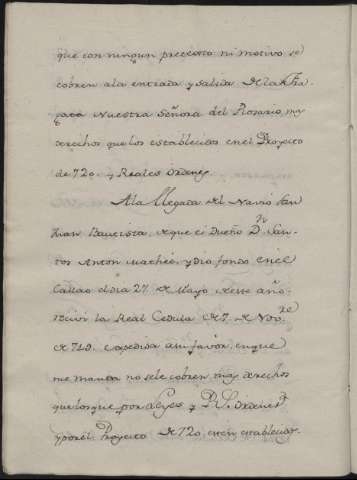 que con ningun pretexto ni motivo se
cobren ala entrada y salida de la Fra
gata Nuestra Señora del Rosario, mas
derechos que los establecidos en el Proyecto
de 720. y Reales ordenes.
Ala llegada del Navio San
Juan Bautista, de que es Dueño Dn. San
tos Anton Matheo, y dio fondo en el
Callao el dia 27. de Mayo de este año
recivi la Real Cedula de 7. de Nov.re
de 749. expedida asu favor, en que
me manda no sele cobren mas derechos
que los que por Leyes y Rs. ordenes
y por el Proyecto de 720 estén establecidos.